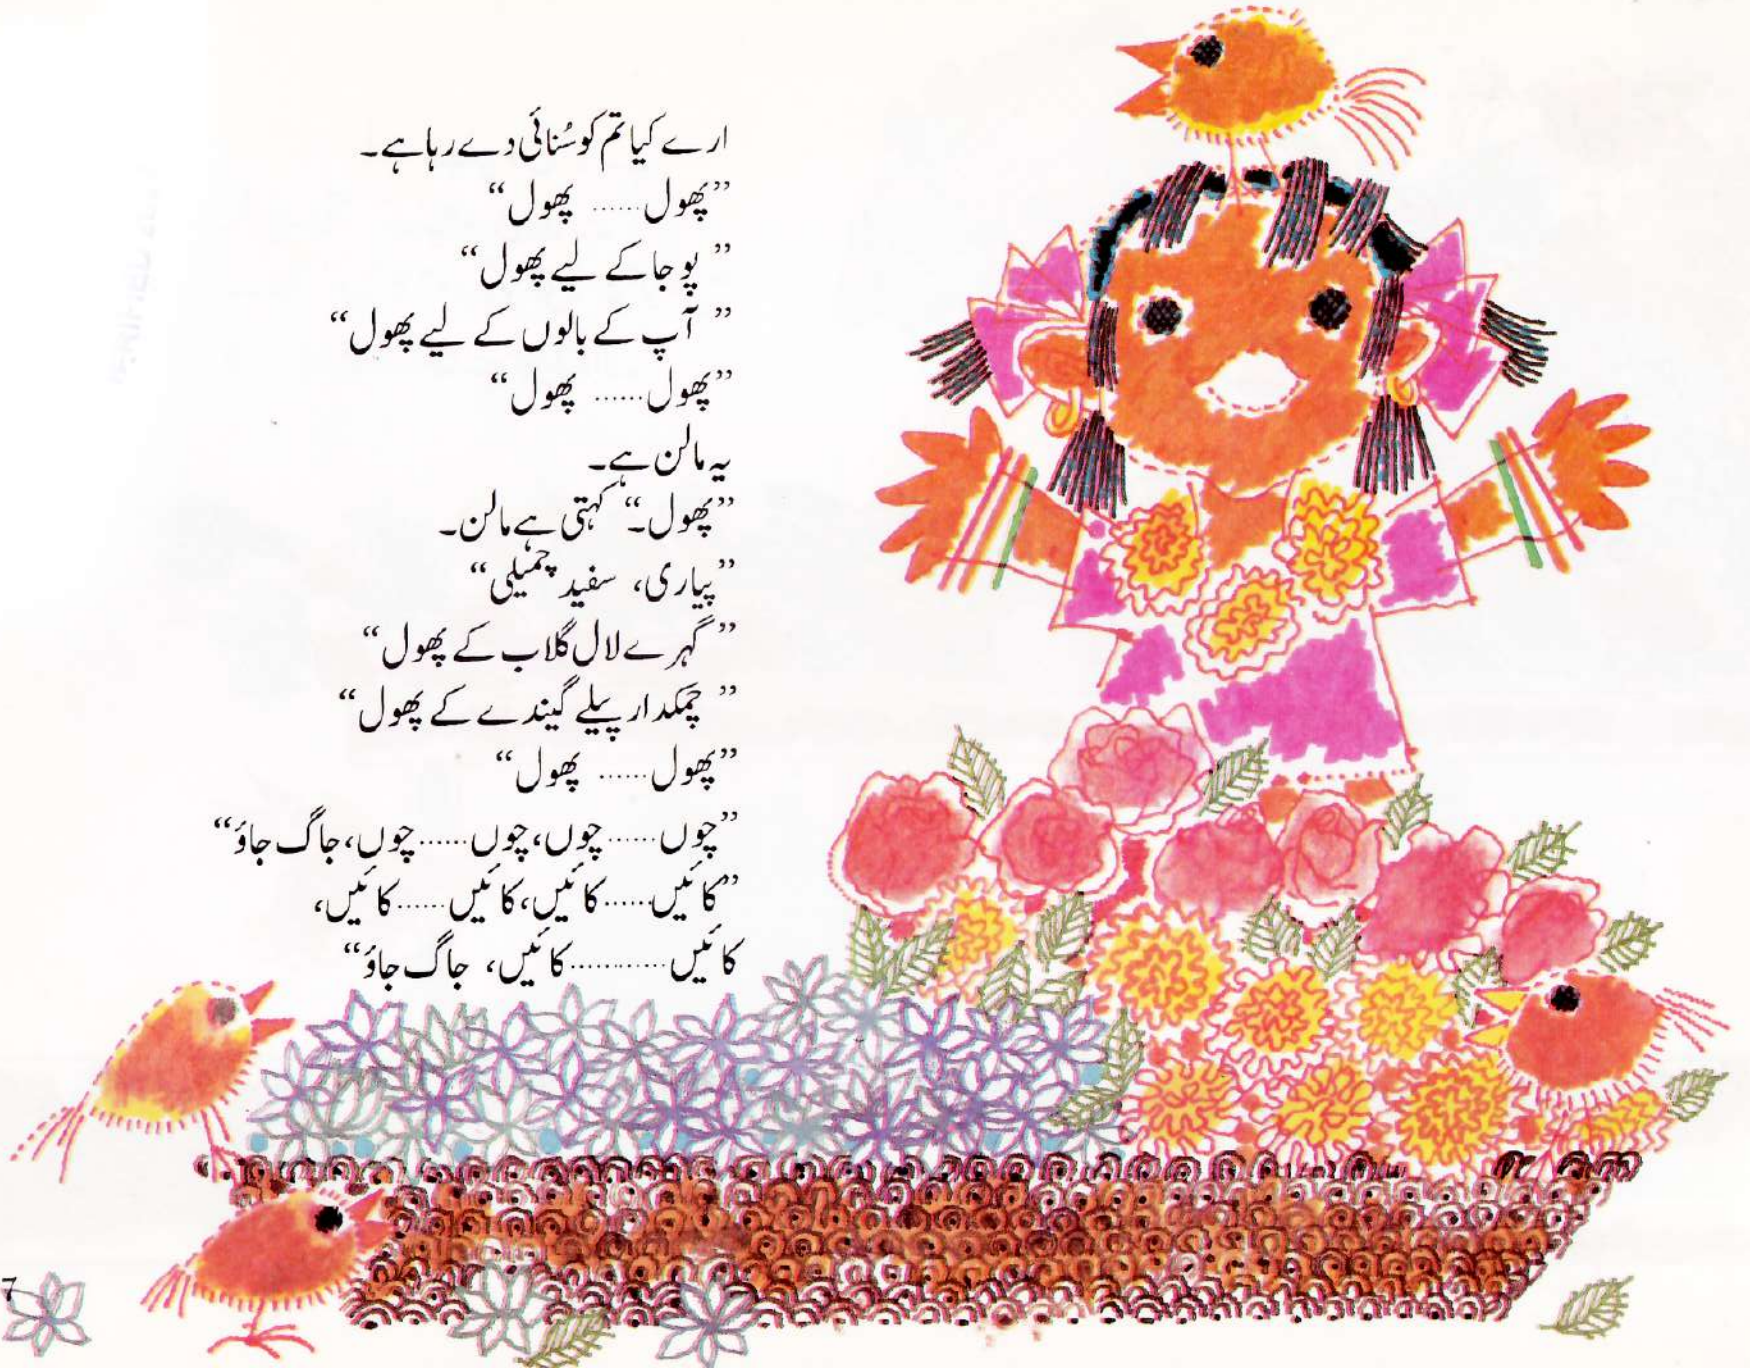 ارے کیا تم کو سُنائی دے رہا ہے۔
”پھول ...... پھول“
” پوجا کے لیے پھول“
” آپ کے بالوں کے لیے پھول“
”پھول ...... پھول“
یہ مالن ہے۔
”پھول۔“ کہتی ہے مالن۔
”پیاری، سفید چمیلی“
” گہرے لال گلاب کے پھول“
” چمکدار پیلے گیندے کے پھول“
”پھول ...... پھول“
”چوں ...... چوں، چوں ...... چوں، جاگ جاؤ“
”کائیں ...... کائیں، کائیں ...... کائیں،
کائیں ............ کائیں، جاگ جاؤ“
7